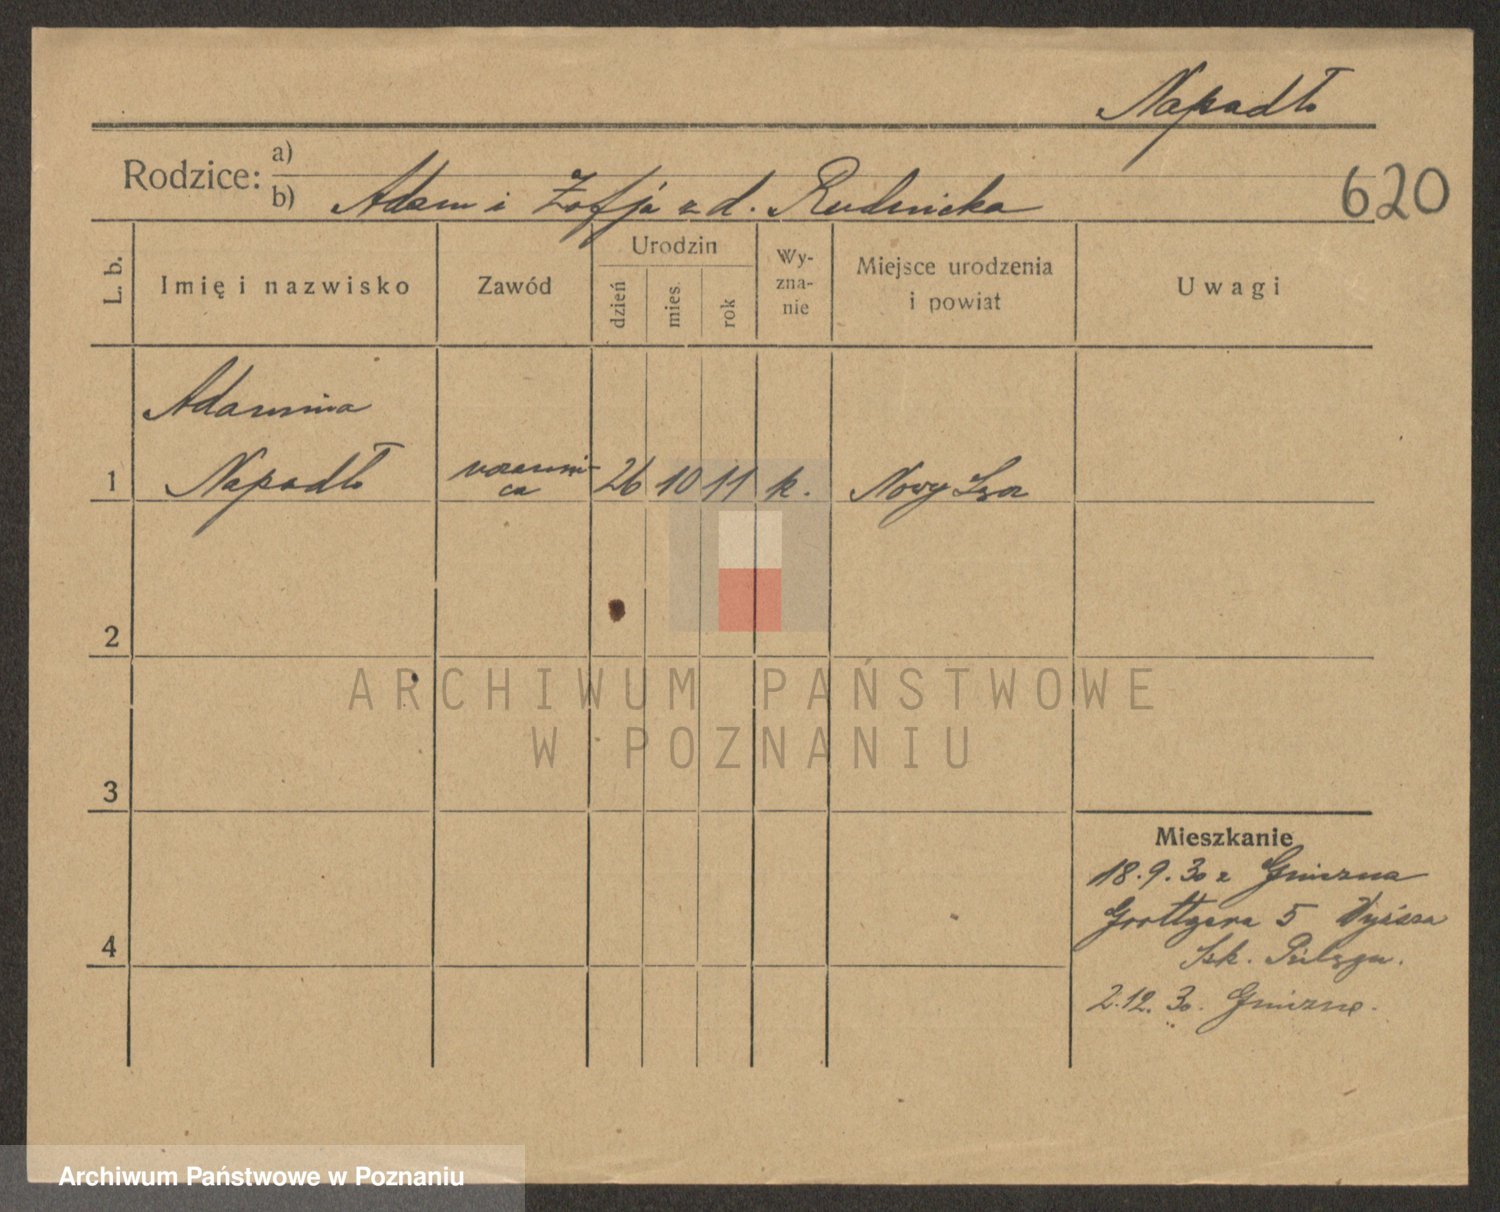 Napadło
Rodzice:
a)
b) Adam i Zofja z d. Rudnicka
620
L. b.
Imię i nazwisko
Zawód
Urodzin
dzień
mies.
rok
Wy-
zna-
nie
Miejsce urodzenia
i powiat
Uwagi
Adamina
1 Napadło uczenni-
ca 26 10 11 k. Nowy Sącz
2
3
4
ARCHIWUM PAŃSTWOWE
W POZNANIU
Mieszkanie
18.9.30 z Gniezna
Grottgera 5 Wyższa
Szk. Pielęgn.
2.12.30. Gniezno.
Archiwum Państwowe w Poznaniu